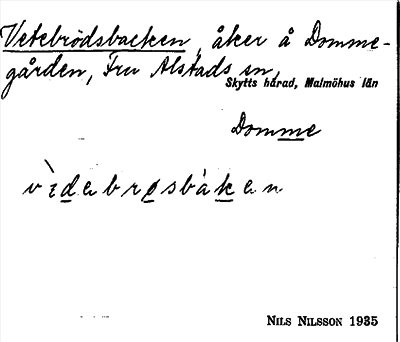 Vetebrödsbacken, åker å Domme-
gården, Fru Alstads sn,
Skytts härad, Malmöhus län
Domme
vìdebrøsbàken
NILS NILSSON 1935